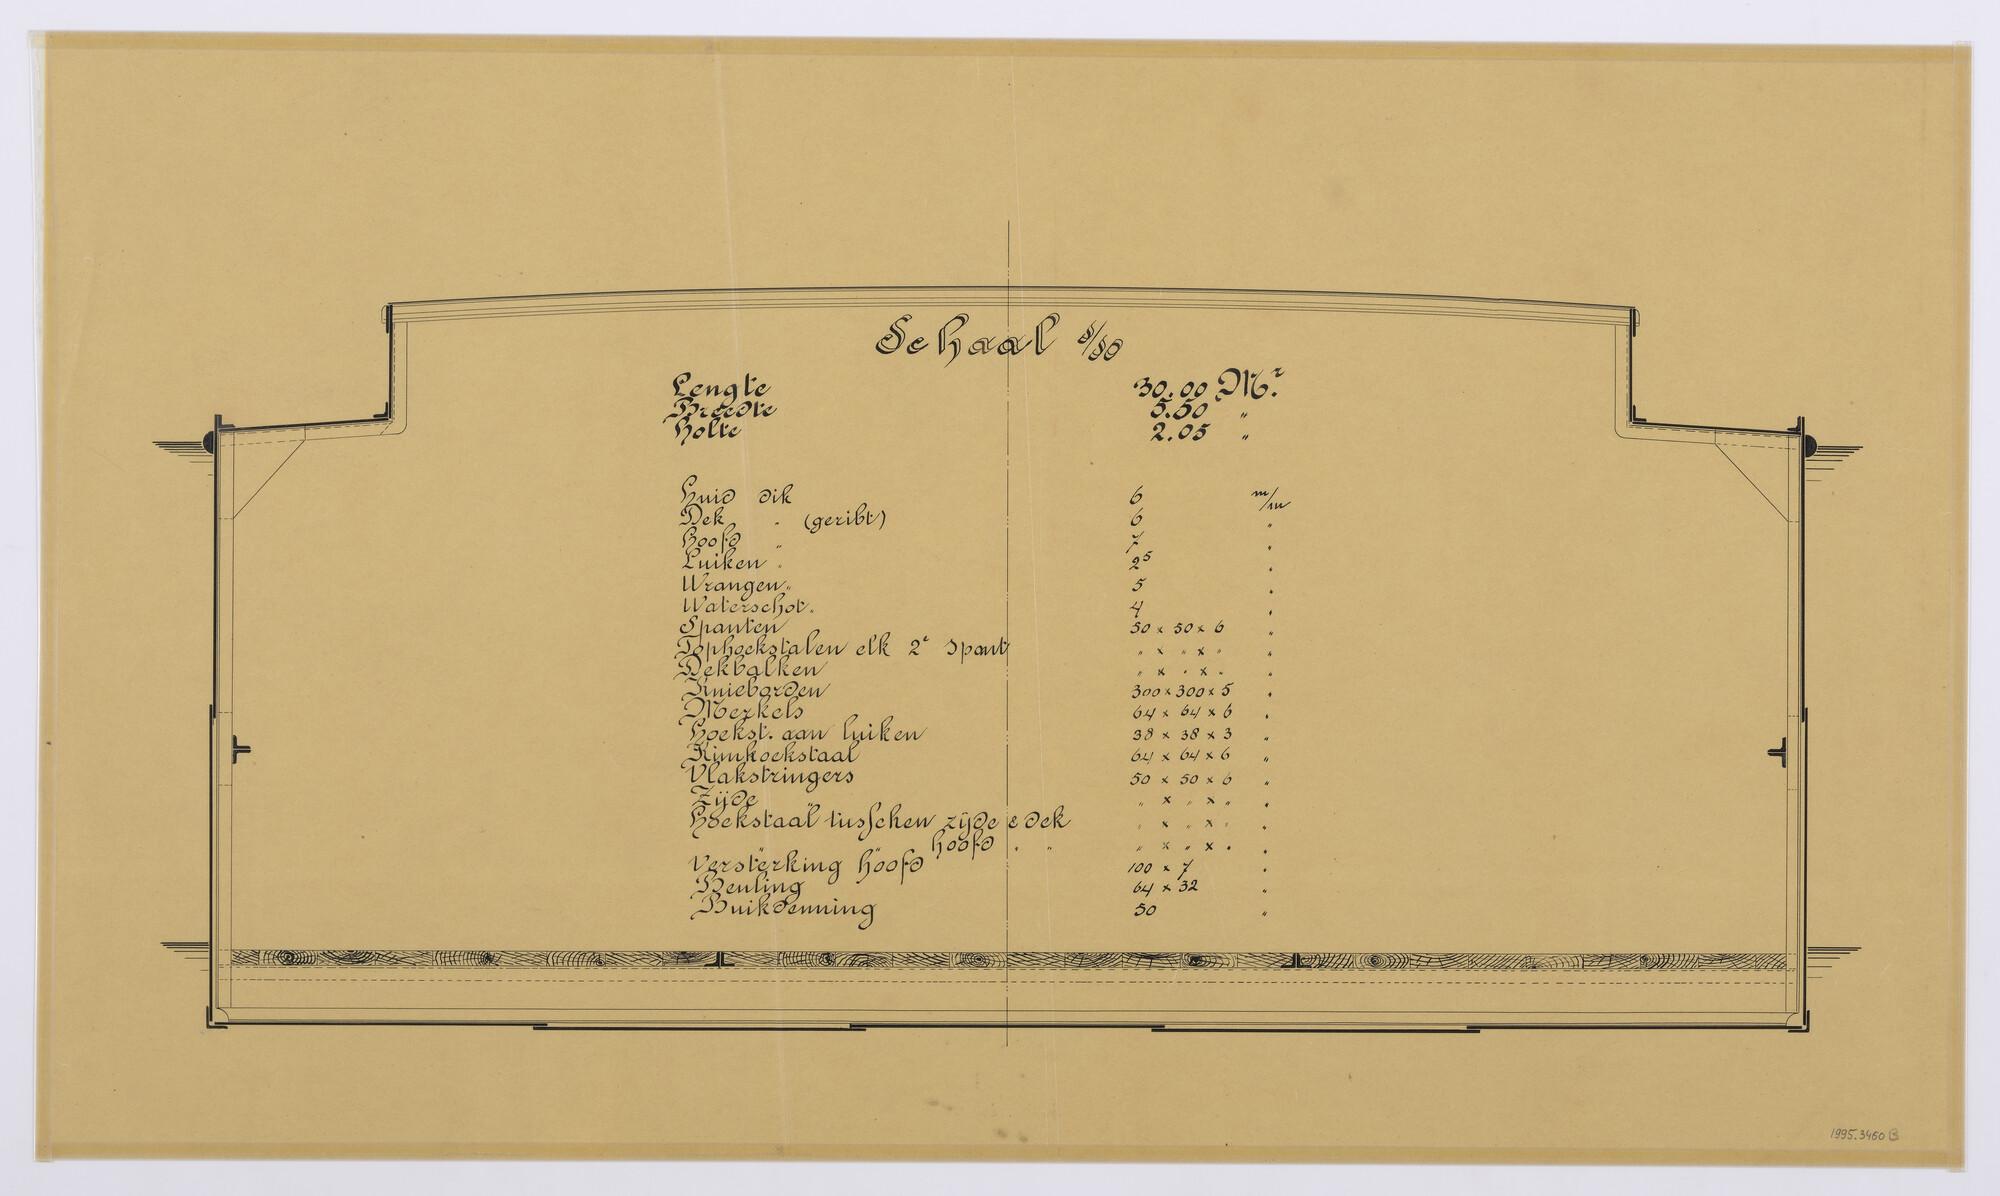 Schaal
Lengte 30.00 Mr.
Breedte 5.50 "
Holte 2.05 "
Huid dik 6 m/m
Dek " (geribt) 6 "
Hoofd " 7 "
Luiken " 2⁵ "
Wrangen " 5 "
Waterschot " 4 "
Spanten 50 x 50 x 6 "
Tophoekstalen elk 2e Spant " x " x " "
Dekbalken " x " x " "
Knieborden 300 x 300 x 5 "
Merkels 64 x 64 x 6 "
Hoekst. aan luiken 38 x 38 x 3 "
Kimhoekstaal 64 x 64 x 6 "
Vlakstringers 50 x 50 x 6 "
Zijde " " x " x " "
Hoekstaal tusschen zijde & dek " x " x " "
" " hoofd " " " x " x " "
Versterking hoofd 100 x 7 "
Beuling 64 x 32 "
Buikdenning 50 "
1995.3460 B